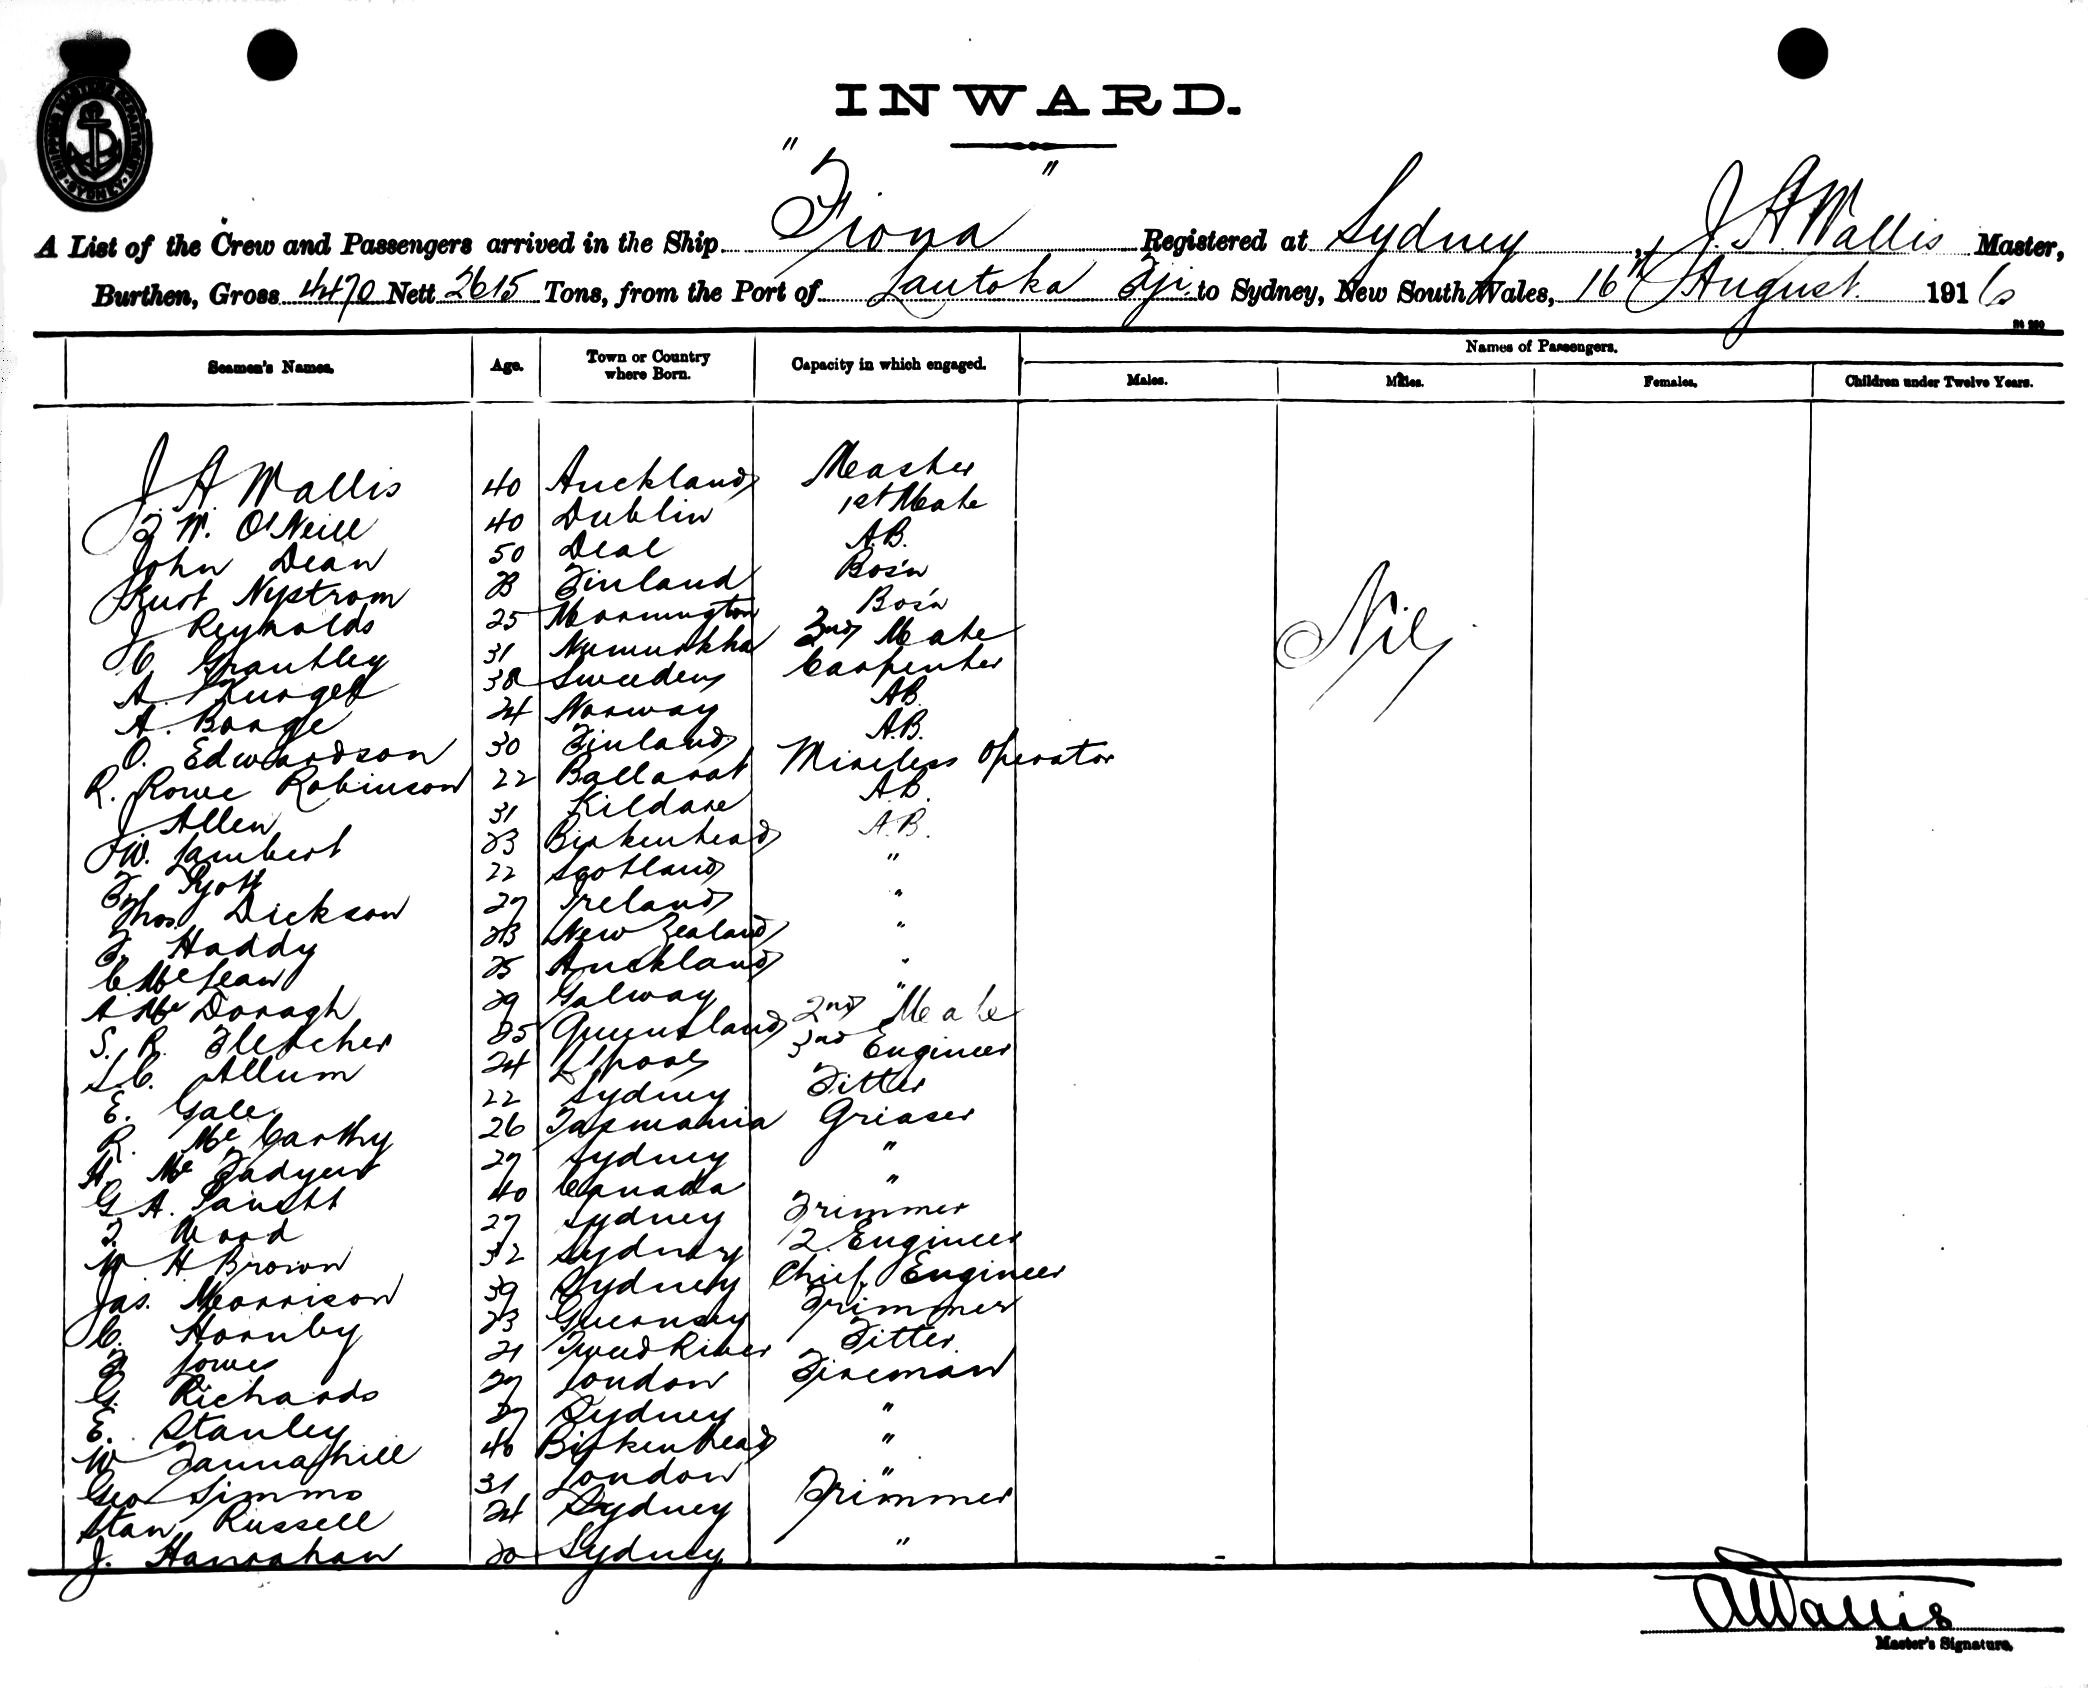 INWARD.
A List of the Crew and Passengers arrived in the Ship "Fiona" Registered at Sydney, J. H. Wallis Master,
Burthen, Gross 4470 Nett 2615 Tons, from the Port of Lautoka Fji. to Sydney, New South Wales, 16th August. 1916
Names of Passengers.
Seamen's Names. Age. Town or Country where Born. Capacity in which engaged. Males. Males. Females. Children under Twelve Years.
J. H. Wallis 40 Auckland Master
F W. O'Neill 40 Dublin 1st Mate
John Dean 50 Deal A.B.
Kurt Nystrom 23 Finland Bos'n
J Reynolds 25 Mornington Bos'n
C. Grantley 31 Numurkha 2nd Mate
A. 38 Sweeden Carpenter
A. Borge 24 Norway AB.
O. Edwardson 30 Finland A.B.
R. Rowe Robinson 22 Ballarat Wireless Operator
J Allen 31 Kildare A.B.
W. Lambert 23 Birkenhead A.B.
F. 22 Scotland "
Thos. Dickson 27 Ireland "
F. Haddy 23 New Zealand "
C. McLean 25 Auckland "
A McDonagh 29 Galway "
S. R. Fletcher 25 Queensland 2nd Mate
S. C. Allum 24 L'pool 3rd Engineer
E. Gale 22 Sydney Fitter
R. McCarthy 26 Tasmania Greaser
H. McFadyen 27 Sydney "
G A. 40 Canada "
F. Wood 27 Sydney Trimmer
W H Brown 32 Sydney 2 Engineer
Jas. Morrison 39 Sydney Chief Engineer
C. Hornby 23 Guernsey Trimmer
F Lowes 21 Tweed River Fitter
G. Richards 27 London Fireman
E. Stanley 27 Sydney "
W Tannahill 40 Birkenhead "
Geo Simms 31 London "
Stan Russell 24 Sydney Trimmer
J. Hanrahan 20 Sydney "
Nil
Wallis
Master's Signature.